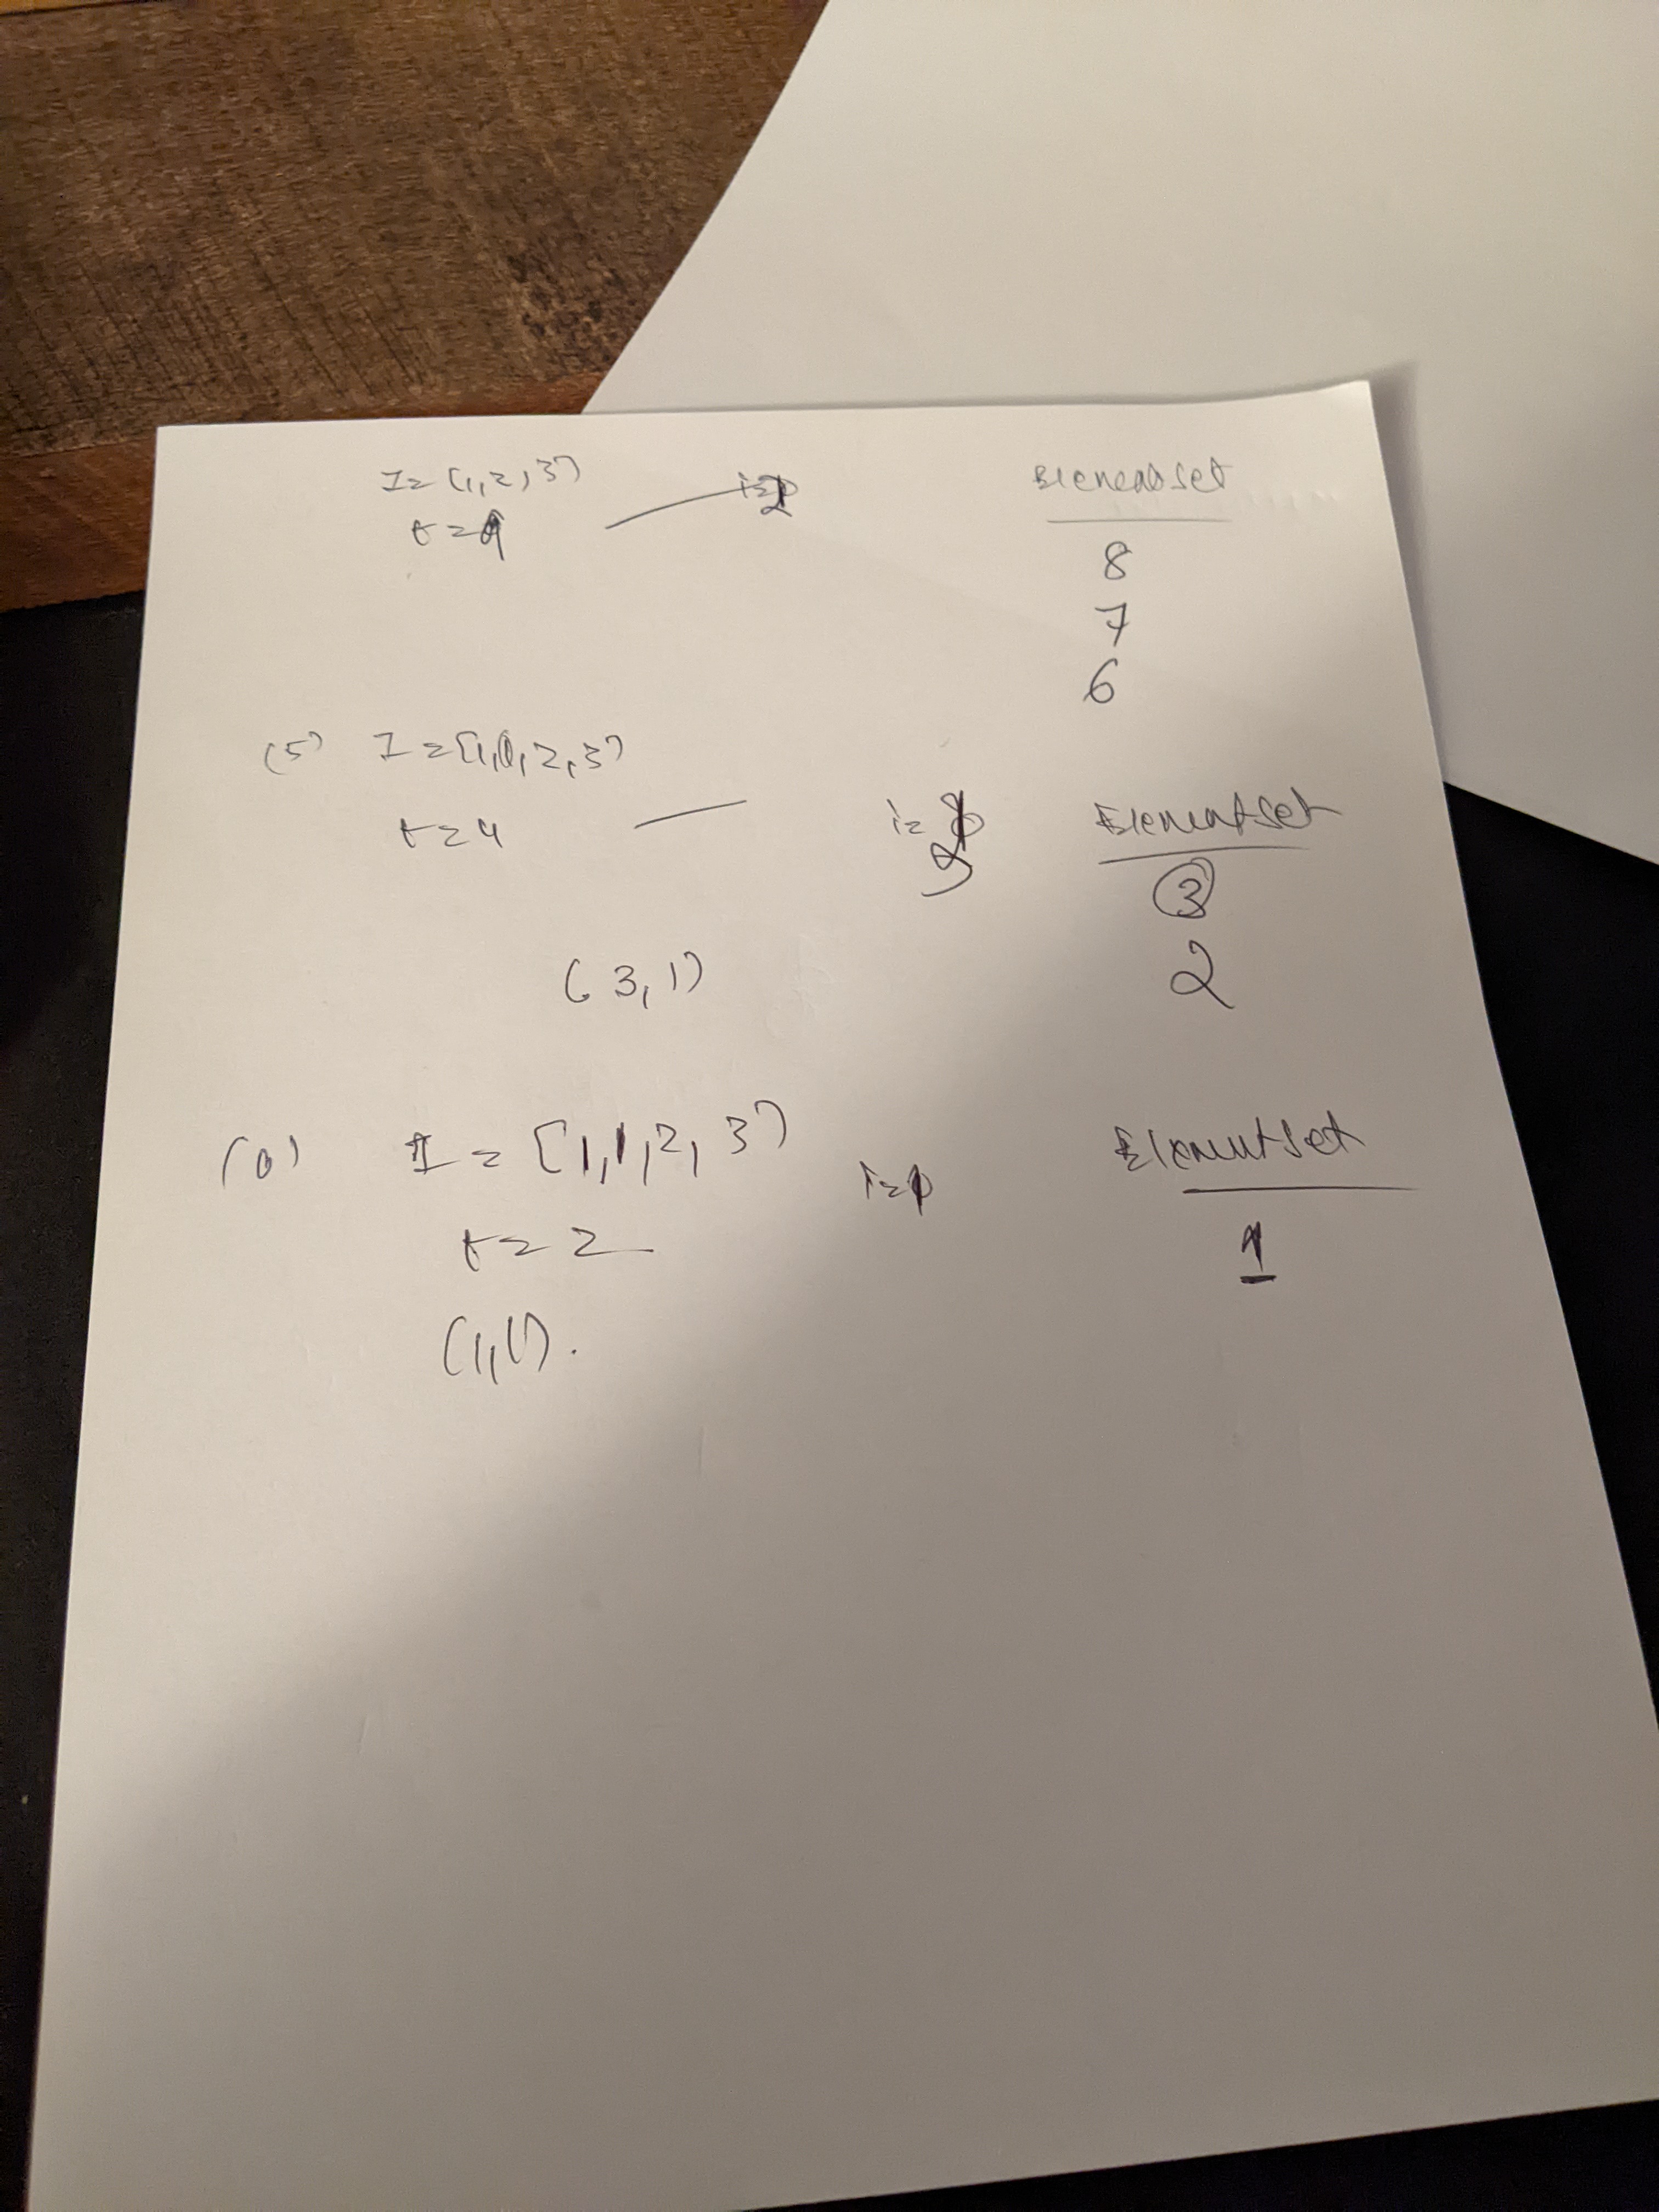 I = (1,2,3)
t = 9
i=2
Elementset
8
7
6
(5) I = [1,1,2,3)
t = 4
i= 3
Elementset
3
2
(3,1)
(6) I = [1,1,2,3)
t = 2
i=1
Elementset
1
(1,1).